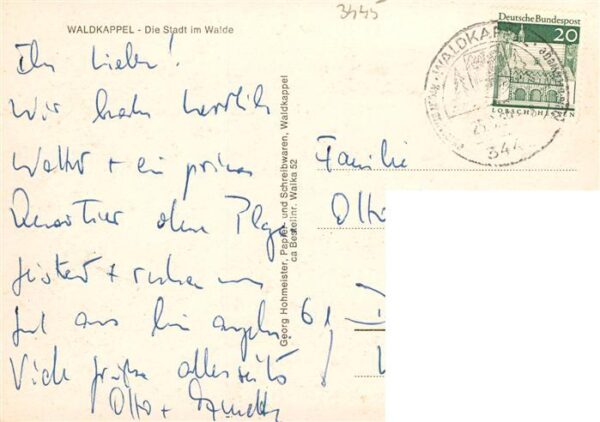 3445
WALDKAPPEL - Die Stadt im Walde
Deutsche Bundespost
20
LORSCH/HESSEN
WALDKAPPEL
344
Ihr Lieben!
Wir haben herrlich
Wetter + ein prima
Quartier ohne
+ ruhen uns
gut aus
Viele Grüße allerseits
Otto +
Georg Hohmeister, Papier- und Schreibwaren, Waldkappel
ca Bestellnr. Walka 52
Familie
Otto
61